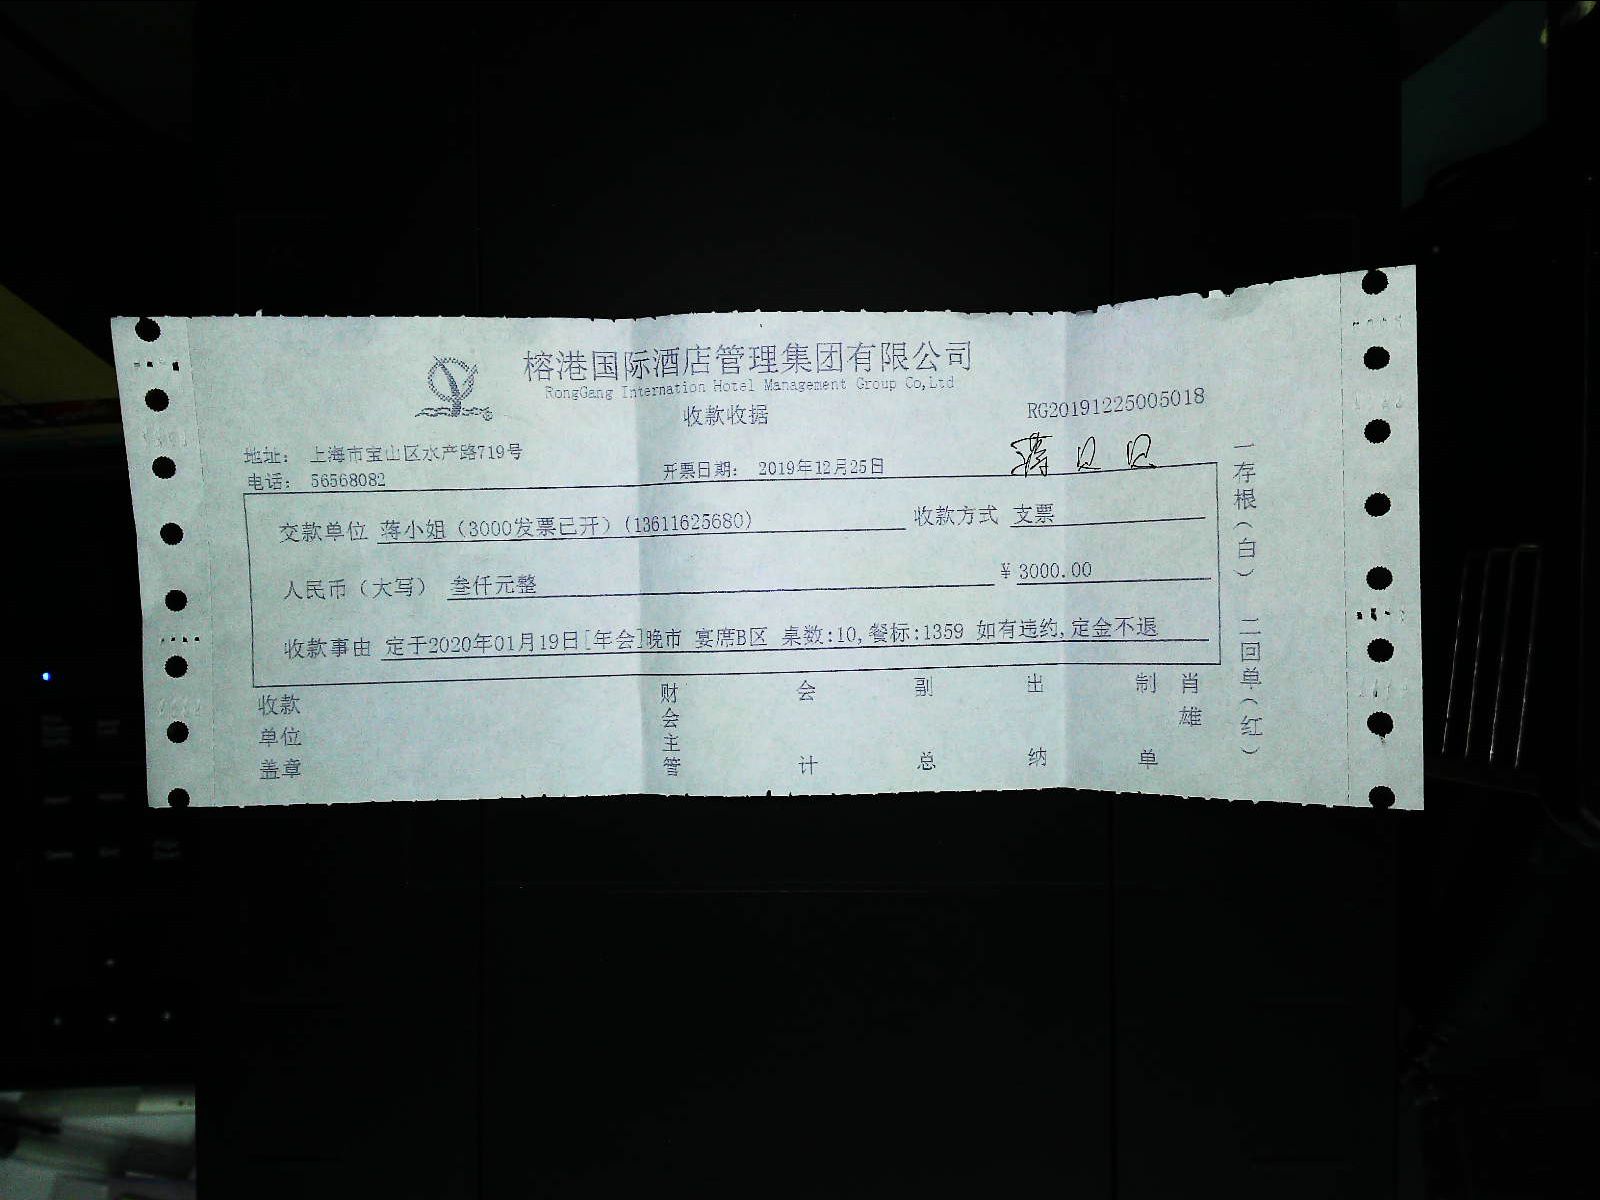 榕港国际酒店管理集团有限公司
RongGang Internation Hotel Management Group Co,Ltd
收款收据
RG20191225005018
地址： 上海市宝山区水产路719号
电话： 56568082
开票日期： 2019年12月25日
蒋贝贝
交款单位 蒋小姐（3000发票已开）(13611625680) 收款方式 支票
人民币（大写） 叁仟元整 ¥ 3000.00
收款事由 定于2020年01月19日[年会]晚市 宴席B区 桌数:10,餐标:1359 如有违约,定金不退
收款单位盖章
财会主管
会计
副总
出纳
制单
肖雄
一存根（白） 二回单（红）